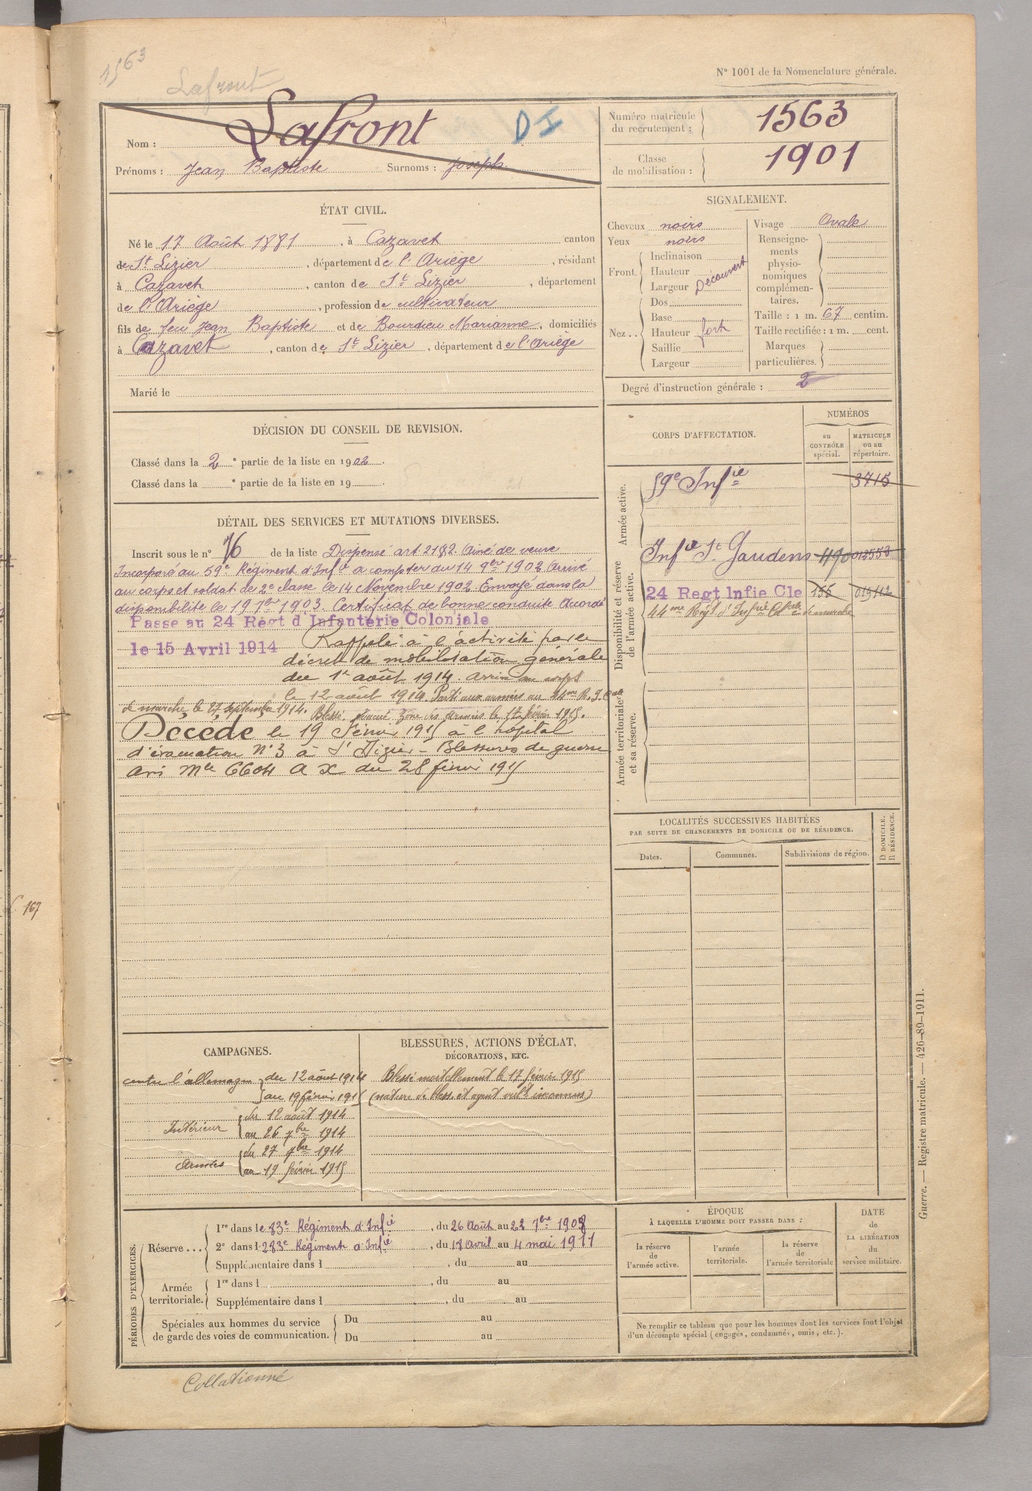 1563
Lafront
N° 1001 de la Nomenclature générale.
Nom : Lafront
D I
Prénoms : Jean Baptiste Surnoms : Joseph
Numéro matricule du recrutement : 1563
Classe de mobilisation : 1901
ÉTAT CIVIL.
Né le 17 Août 1881, à Cazavet canton
de St Lizier, département de l'Ariège, résidant
à Cazavet, canton de St Lizier, département
de l'Ariège, profession de cultivateur
fils de feu Jean Baptiste et de Bourdieu Marianne, domiciliés
à Cazavet, canton de St Lizier, département de l'Ariège
Marié le
SIGNALEMENT.
Cheveux noirs
Yeux noirs
Front. Inclinaison
Hauteur
Largeur Découvert
Nez.. Dos
Base
Hauteur fort
Saillie
Largeur
Visage Ovale
Renseignements physionomiques complémentaires.
Taille : 1 m. 67 centim.
Taille rectifiée : 1 m. cent.
Marques particulières.
Degré d'instruction générale : 2
DÉCISION DU CONSEIL DE REVISION.
Classé dans la 2e partie de la liste en 1902.
Classé dans la e partie de la liste en 19 .
DÉTAIL DES SERVICES ET MUTATIONS DIVERSES.
Inscrit sous le n° 76 de la liste Dispensé art 21 § 2. Ainé de veuve
Incorporé au 59e Régiment d'Infie à compter du 14 9bre 1902. Arrivé
au corps et soldat de 2e classe le 14 Novembre 1902. Envoyé dans la
disponibilité le 19 7bre 1903. Certificat de bonne conduite Accordé
Passe au 24 Régt d'Infanterie Coloniale
le 15 Avril 1914
Rappelé à l'activité par le
décret de mobilisation générale
du 1er août 1914. arrivé au corps
le 12 août 1914. Parti aux armées au 44me R. I. Col.
de marche, le 27 septembre 1914. Blessé
le 17 février 1915.
Décédé le 19 février 1915 à l'hôpital
d'évacuation N° 3 à St Dizier – Blessures de guerre
avis Mle 6604 A X du 28 février 1915
CORPS D'AFFECTATION.
NUMÉROS
au CONTRÔLE spécial.
MATRICULE ou au répertoire.
Armée active.
59e Infie 3715
Disponibilité et réserve de l'armée active.
Infie St Gaudens 1190 012553
24 Regt Infie Cle 155 015112
44me Régt d'Infrie Colale de marche
Armée territoriale et sa réserve.
LOCALITÉS SUCCESSIVES HABITÉES
PAR SUITE DE CHANGEMENTS DE DOMICILE OU DE RÉSIDENCE.
Dates. Communes. Subdivisions de région. D DOMICILE. R RÉSIDENCE.
CAMPAGNES.
contre l'allemagne du 12 août 1914
au 19 février 1915
Intérieur du 12 août 1914
au 26 7bre 1914
Armées du 27 7bre 1914
au 19 février 1915
BLESSURES, ACTIONS D'ÉCLAT,
DÉCORATIONS, ETC.
Blessé mortellement le 17 février 1915
(nature de bless. et agent vult inconnus)
PÉRIODES D'EXERCICES.
Réserve...
1re dans le 83e Régiment d'Infie, du 26 Août au 22 7bre 1908
2e dans l 283e Régiment d'Infie, du 18 avril au 4 mai 1911
Supplémentaire dans l , du au
Armée territoriale.
1re dans l , du au
Supplémentaire dans l , du au
Spéciales aux hommes du service de garde des voies de communication.
Du au
Du au
ÉPOQUE
À LAQUELLE L'HOMME DOIT PASSER DANS :
la réserve de l'armée active. l'armée territoriale. la réserve de l'armée territoriale
DATE de LA LIBÉRATION du service militaire.
Ne remplir ce tableau que pour les hommes dont les services font l'objet
d'un décompte spécial (engagés, condamnés, omis, etc.).
Guerre. — Registre matricule. — 426-89-1911.
Collationné
167